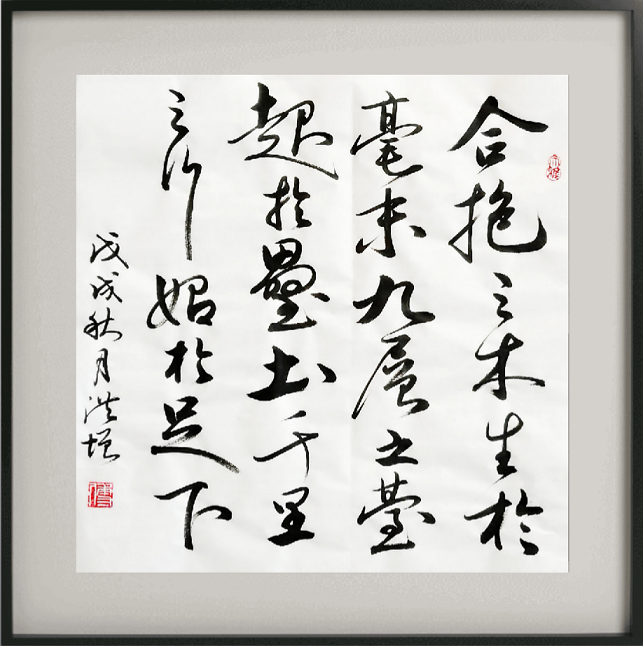 合抱之木生於
毫末九層之臺
起於壘土千里
之行始於足下
戊戌秋月洪